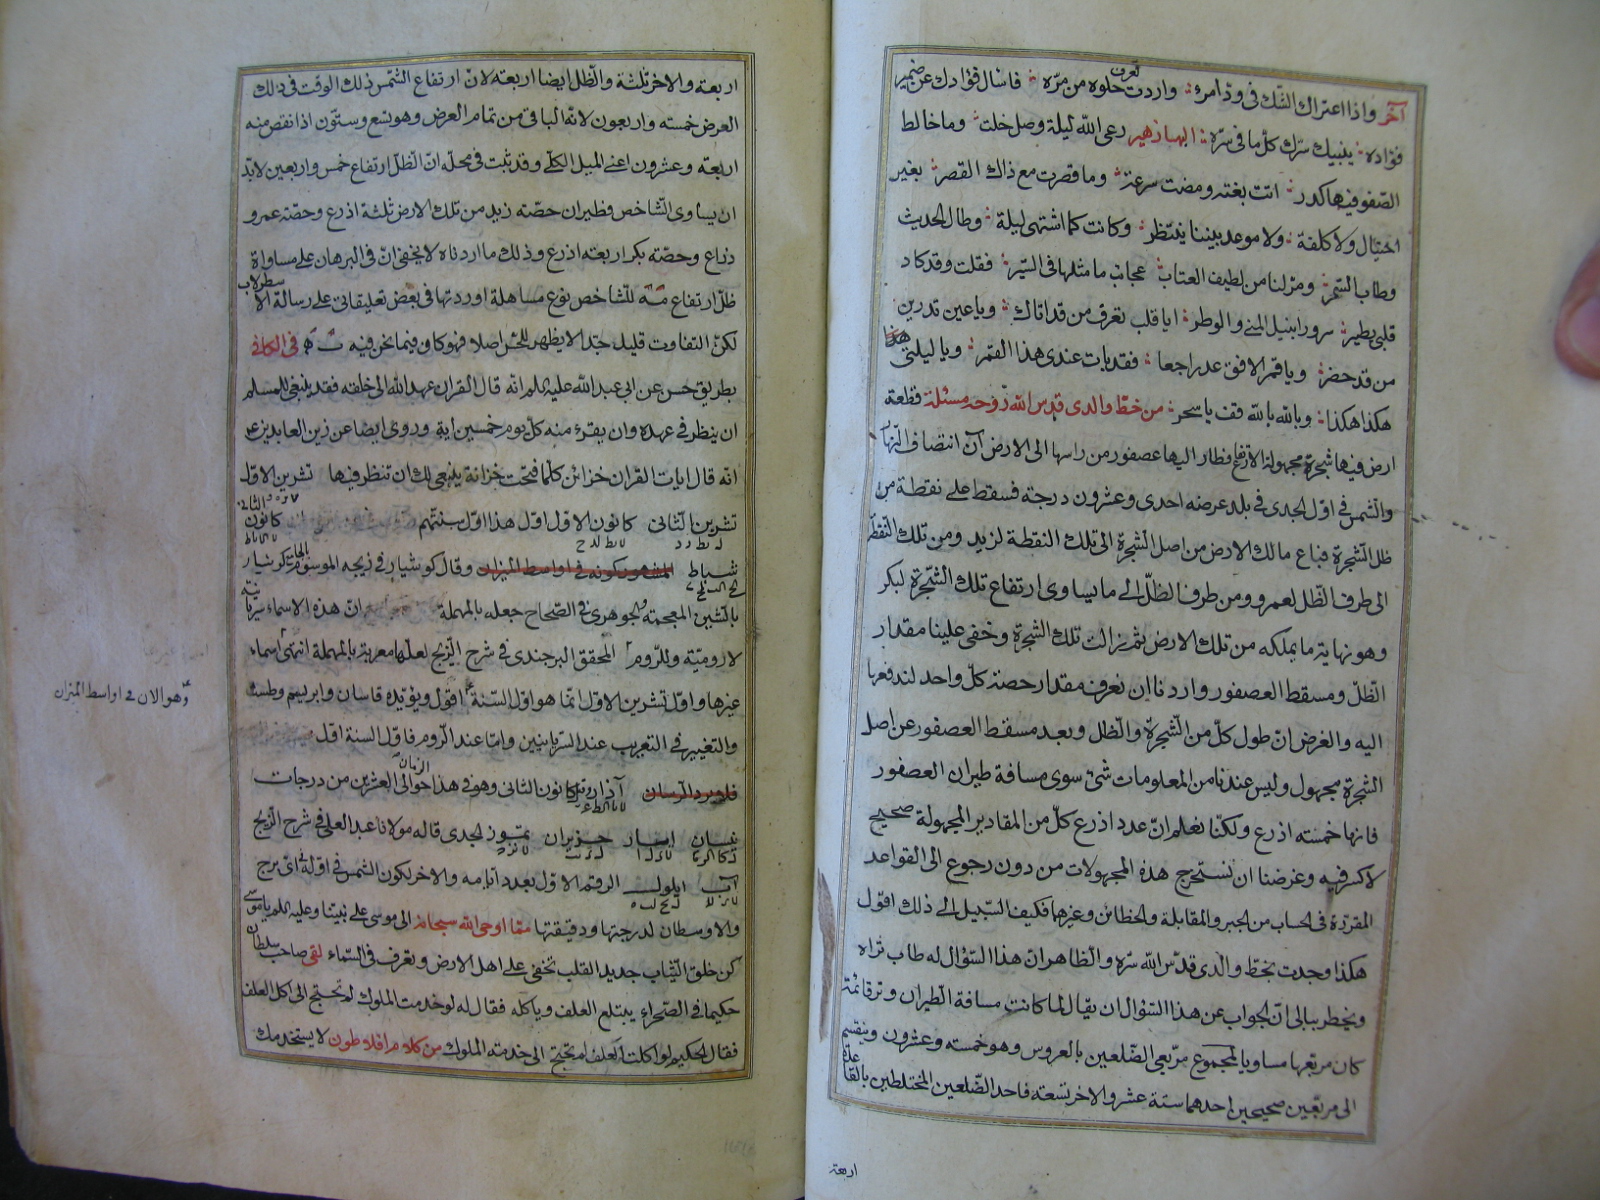 آخر واذا اعتراك الشك فى ود امرئ واردت تعرف حلوه من مره فاسال فؤادك عن ضمير
فؤاده ينبيك سرك كل ما فى سره البها زهير رعى الله ليلة وصل خلت وما خالط
الصفو فيها كدر اتت بغتة ومضت سرعة وما قصرت مع ذاك القصر بغير
احتيال ولا كلفة ولا موعد بيننا ينتظر وكانت كما اشتهى ليلة وطال الحديث
وطاب السمر ومر لنا من لطيف العتاب عجائب ما مثلها فى السير فقلت وقد كاد
قلبى يطير سرورا بنيل المنى والوطر ايا قلب تعرف من قد اتاك ويا عين تدرين
من قد حضر ويا قمر الافق عد راجعا فقد بات عندى هذا القمر ويا ليلتى هكذا
هكذا هكذا وبالله بالله قف يا سحر من خط والدى قدس الله روحه مسئلة قطعة
ارض فيها شجرة مجهولة الارتفاع فطار اليها عصفور من راسها الى الارض آن انتصاف النهار
والشمس فى اول الجدى فى بلد عرضه احدى وعشرون درجة فسقط على نقطة من
ظل الشجرة فباع مالك الارض من اصل الشجرة الى تلك النقطة لزيد ومن تلك النقطة
الى طرف الظل لعمرو ومن طرف الظل الى ما يساوى ارتفاع تلك الشجرة لبكر
وهو نهاية ما يملكه من تلك الارض ثم زالت تلك الشجرة وخفى علينا مقدار
الظل ومسقط العصفور واردنا ان نعرف مقدار حصة كل واحد لندفعها
اليه والغرض ان طول كل من الشجرة والظل وبعد مسقط العصفور عن اصل
الشجرة مجهول وليس عندنا من المعلومات شئ سوى مسافة طيران العصفور
فانها خمسه اذرع ولكنا نعلم ان عدد اذرع كل من المقادير المجهولة صحيح
لا كسر فيه وغرضنا ان نستخرج هذه المجهولات من دون رجوع الى القواعد
المقررة فى الحساب من الجبر والمقابلة والخطائين وغيرهما فكيف السبيل الى ذلك اقول
هكذا وجدت بخط والدى قدس الله سره والظاهر ان هذا السؤال له طاب ثراه
ويخطر ببالى ان الجواب عن هذا السؤال ان يقال لما كانت مسافة الطيران وتر قائمة
كان مربعها مساويا لمجموع مربعى الضلعين بالعروس وهو خمسه وعشرون وينقسم
الى مربعين صحيحين احدهما ستة عشر والاخر تسعة فاحد الضلعين المختلطين بالقائمة
اربعة
اربعة والاخر ثلثة والظل ايضا اربعة لان ارتفاع الشمس ذلك الوقت فى ذلك
العرض خمسه واربعون لانه الباقى من تمام العرض وهو تسع وستون اذا نقص منه
اربعة وعشرون اعنى الميل الكلى وقد ثبت فى محله ان الظل ارتفاع خمس واربعين لابد
ان يساوى الشاخص فظهر ان حصة زيد من تلك الارض ثلثة اذرع وحصة عمرو
ذراع وحصة بكر اربعة اذرع وذلك ما اردناه لا يخفى ان فى البرهان على مساواة
ظل ارتفاع مه للشاخص نوع مساهلة اوردتها فى بعض تعليقاتى على رسالة الاسطرلاب
لكن التفاوت قليل جدا لا يظهر للحس اصلا فهو كاف فيما نحن فيه فى الكافى
بطريق حسن عن ابى عبد الله عليه السلم انه قال القران عهد الله الى خلقه فقد ينبغى للمسلم
ان ينظر فى عهده وان يقرء منه كل يوم خمسين اية وروى ايضا عن زين العابدين ع
انه قال ايات القران خزائن كلما فتحت خزانة ينبغى لك ان تنظر فيها تشرين الاول
تشرين الثانى كانون الاول اول هذا اول سنتهم كانون الثانى
شباط المشهور كونه فى اواسط الميزان وقال كوشيار فى زيجه الموسوم بالجامع كوشيار
بالشين المعجمة والجوهرى فى الصحاح جعله بالمهملة ان هذه الاسماء سريانية
لا رومية وللروم المحقق البرجندى فى شرح الزيج لعلها معربة بالمهملة انتهى اسماء
غيرها واول تشرين الاول انما هو اول السنة اقول ويؤيده قاسان وابريسم وطست
والتغيير فى التعريب عند السريانيين واما عند الروم فاول السنة اول
آذار كانون الثانى وهو فى هذا الزمان حوالى العشرين من درجات
نيسان ايار حزيران تموز الجدى قاله مولانا عبد العلى فى شرح الزيج
آب ايلول الرقم الاول بعدد ايامه والاخر لكون الشمس فى اوله اى برج
والاوسطان لدرجتها ودقيقتها مما اوحى الله سبحانه الى موسى على نبينا وعليه السلم يا موسى
كن خلق الثياب جديد القلب تخفى على اهل الارض وتعرف فى السماء لقى صاحب سلطان
حكيما فى الصحراء يبتلع العلف وياكله فقال له لو خدمت الملوك لم تحتج الى اكل العلف
فقال الحكيم لو اكلت العلف لم تحتج الى خدمة الملوك من كلام افلاطون لا يستخدمك
وهو الان فى اواسط الميزان